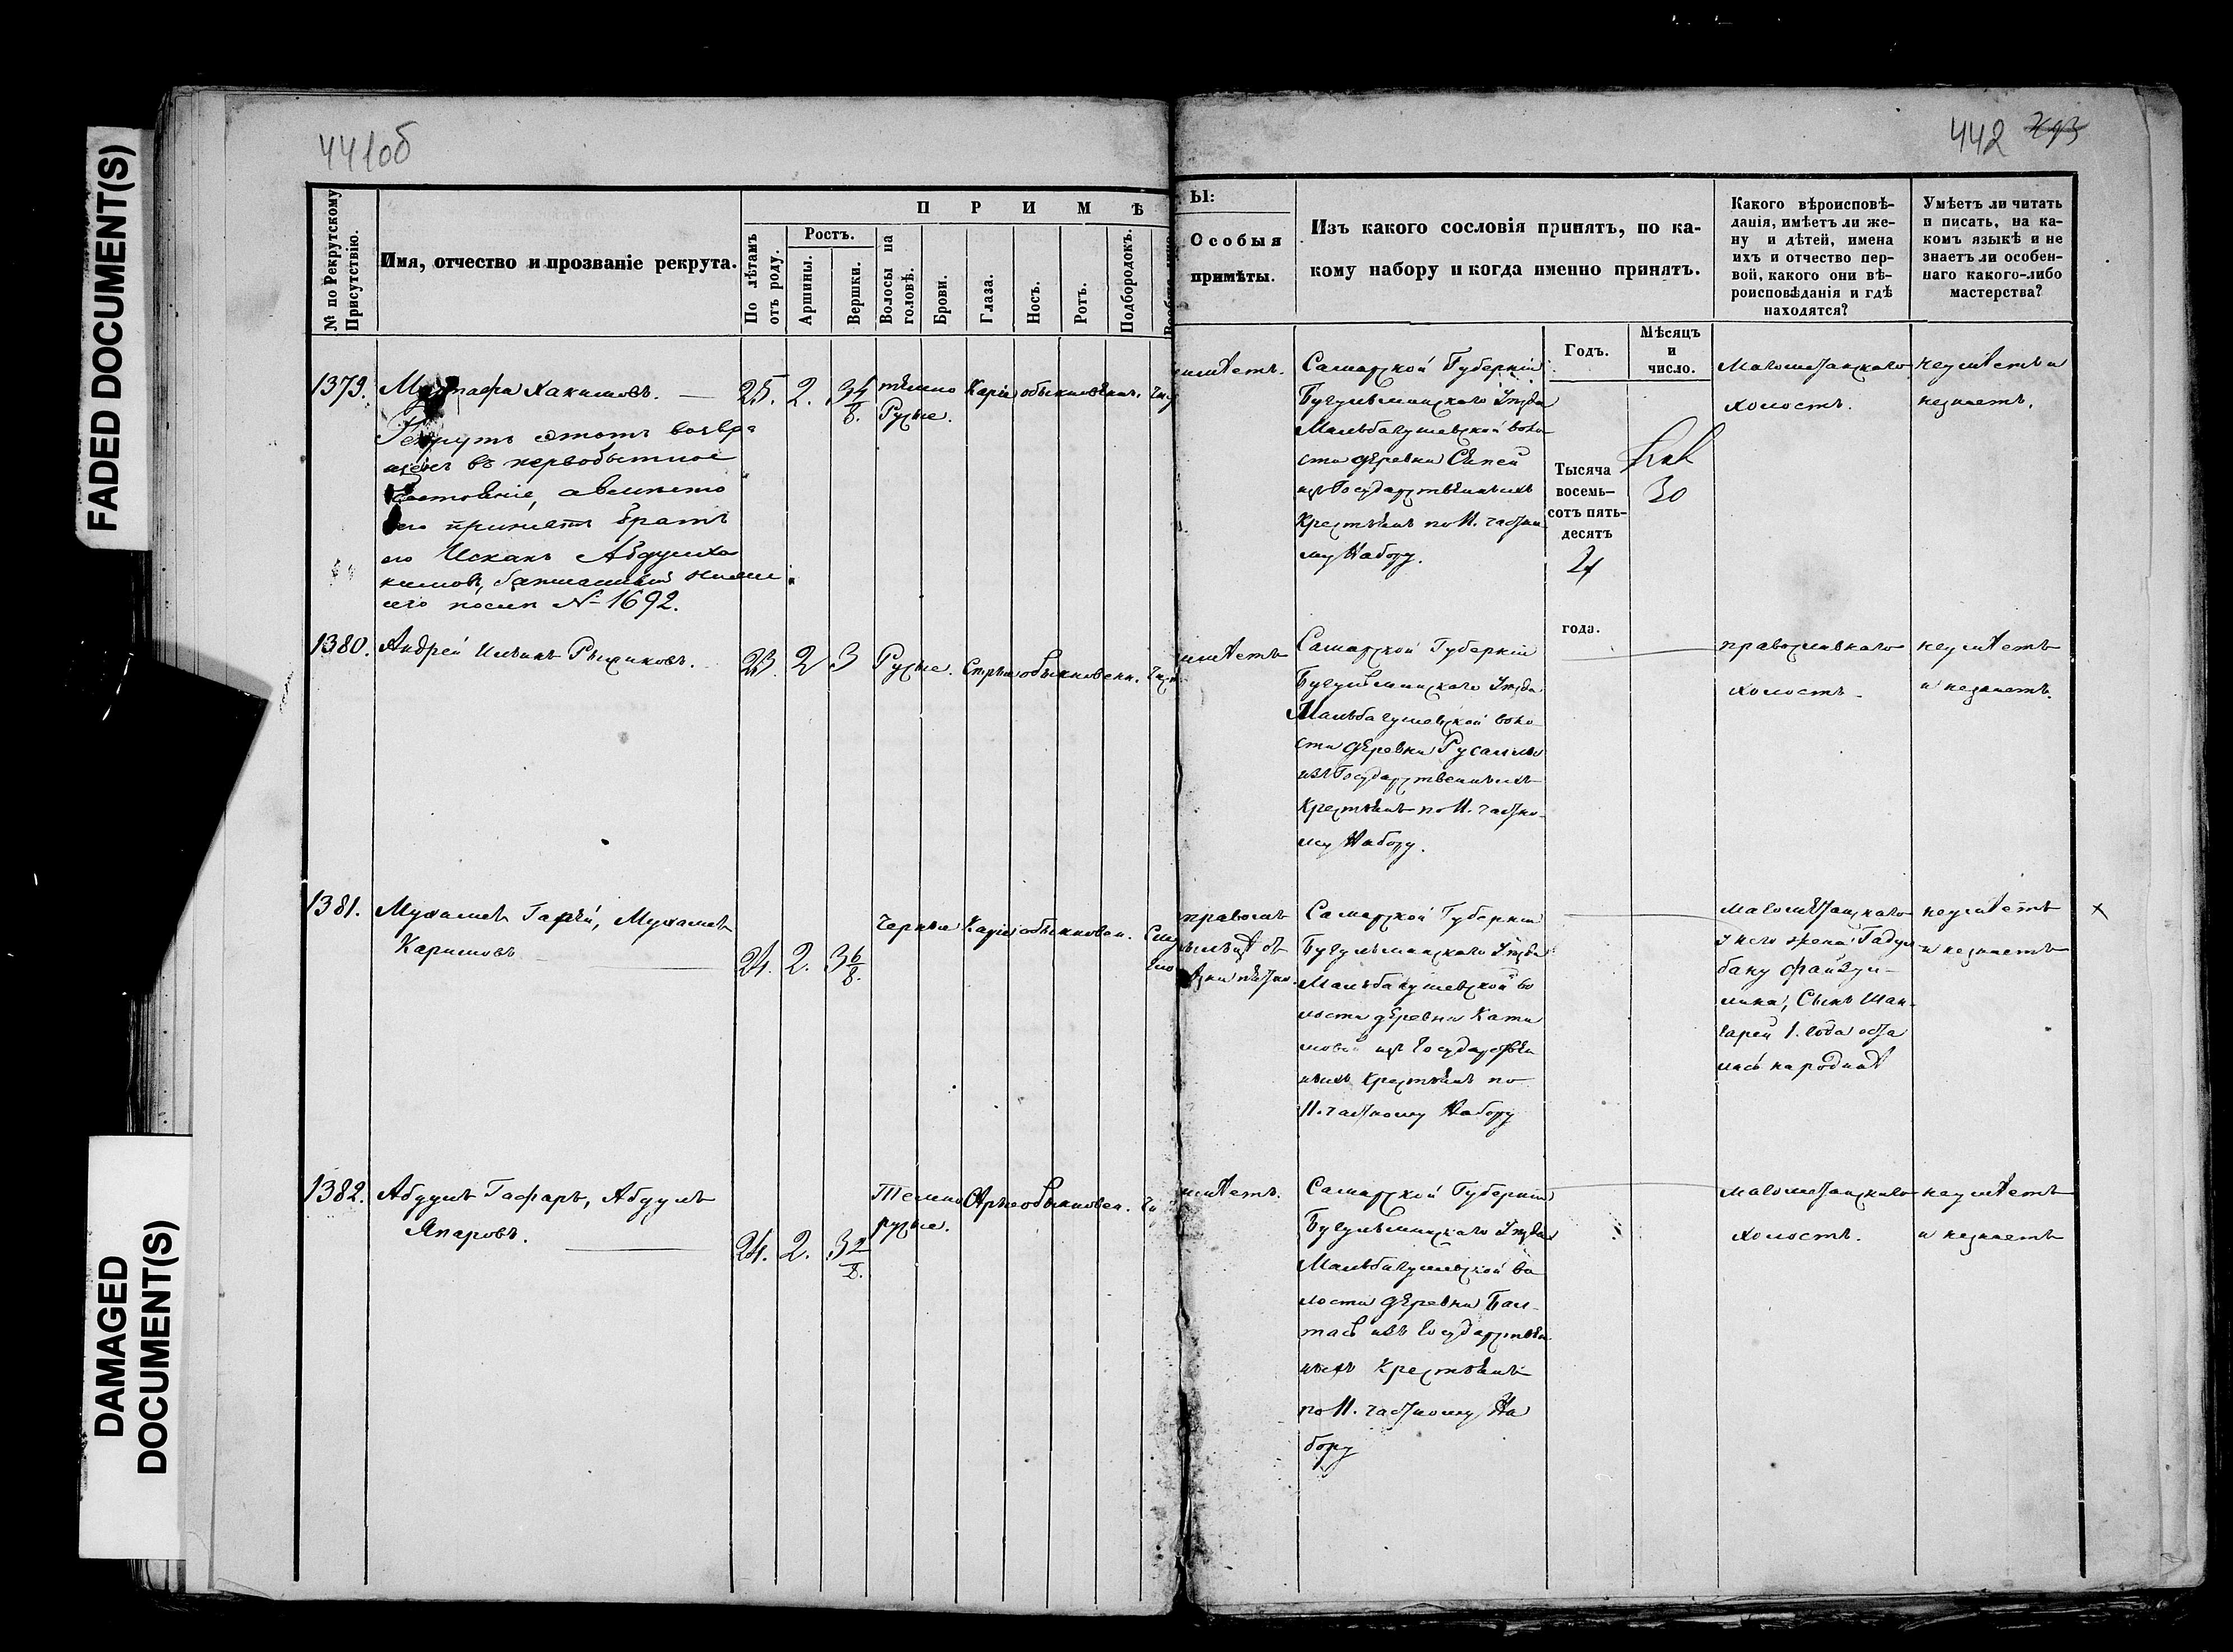 FADED DOCUMENT(S)
DAMAGED
DOCUMENT(S)
441об
442
№ по Рекрутскому
Присутствію.
Имя, отчество и прозваніе рекрута.
П Р И М Ѣ
По лѣтамъ
отъ роду.
Ростъ.
Аршины.
Вершки.
Волосы на
головѣ.
Брови.
Глаза.
Носъ.
Ротъ.
Подбородокъ.
Ы:
Особыя
примѣты.
Изъ какого сословія принятъ, по ка-
кому набору и когда именно принятъ.
Годъ.
Мѣсяцъ
и
число.
Какого вѣроисповѣ-
данія, имѣетъ ли же-
ну и дѣтей, имена
ихъ и отчество пер-
вой, какого они вѣ-
роисповѣданія и гдѣ
находятся?
Умѣетъ ли читать
и писать, на ка-
комъ языкѣ и не
знаетъ ли особен-
наго какого-либо
мастерства?
1379.
Мустафа Хакимовъ.
Рекрутъ этотъ возвра
щенъ въ первобытное
состояніе, а вмѣсто
его принятъ братъ
его Исхакъ Абдулха
кимовъ, записанный ниже
сего подъ № 1692.
25. 2. 3 4/8.
темно
Русые.
Каріе
обыкновенн.
имѣетъ.
Самарской Губерніи
Бугульминскаго Уѣзда
Мальбагушевской воло
сти деревни
изъ Государственныхъ
Крестьянъ по 11. частно
му Набору.
Тысяча
восемь-
сотъ пять-
десятъ
4
года.
30
магометанскаго
холостъ.
неумѣетъ и
незнаетъ.
1380.
Андрей Ильинъ
23. 2 3
Русые.
Сѣрые
обыкновенн.
имѣетъ
Самарской Губерніи
Бугульминскаго Уѣзда
Мальбагушевской воло
сти деревни
изъ Государственныхъ
Крестьянъ по 11. частно
му Набору.
православнаго
холостъ
неумѣетъ
и незнаетъ.
1381.
Мухамет Гарѣй, Мухамет
Каримовъ
24. 2. 3 6/8.
Черные
Каріе
обыкновен.
Самарской Губерніи
Бугульминскаго Уѣзда
Мальбагушевской во
лости деревни Кати
мовой изъ Государствен
ныхъ Крестьянъ по
11. частному Набору
магометанскаго
у него жена Бадгул
бану Файзул-
лина, Сынъ Шан
гарей 1. года оста
лись на родинѣ
неумѣетъ
и незнаетъ
х
1382.
Абдулъ Гафаръ, Абдулъ
Япаровъ.
24. 2. 3 2/8.
Темно
русые.
Сѣрые
обыкновен.
имѣетъ.
Самарской Губерніи
Бугульминскаго Уѣзда
Мальбагушевской во
лости деревни Бал
тась изъ Государствен
ныхъ Крестьянъ
по 11. частному На
бору
магометанскаго
холостъ.
неумѣетъ
и незнаетъ